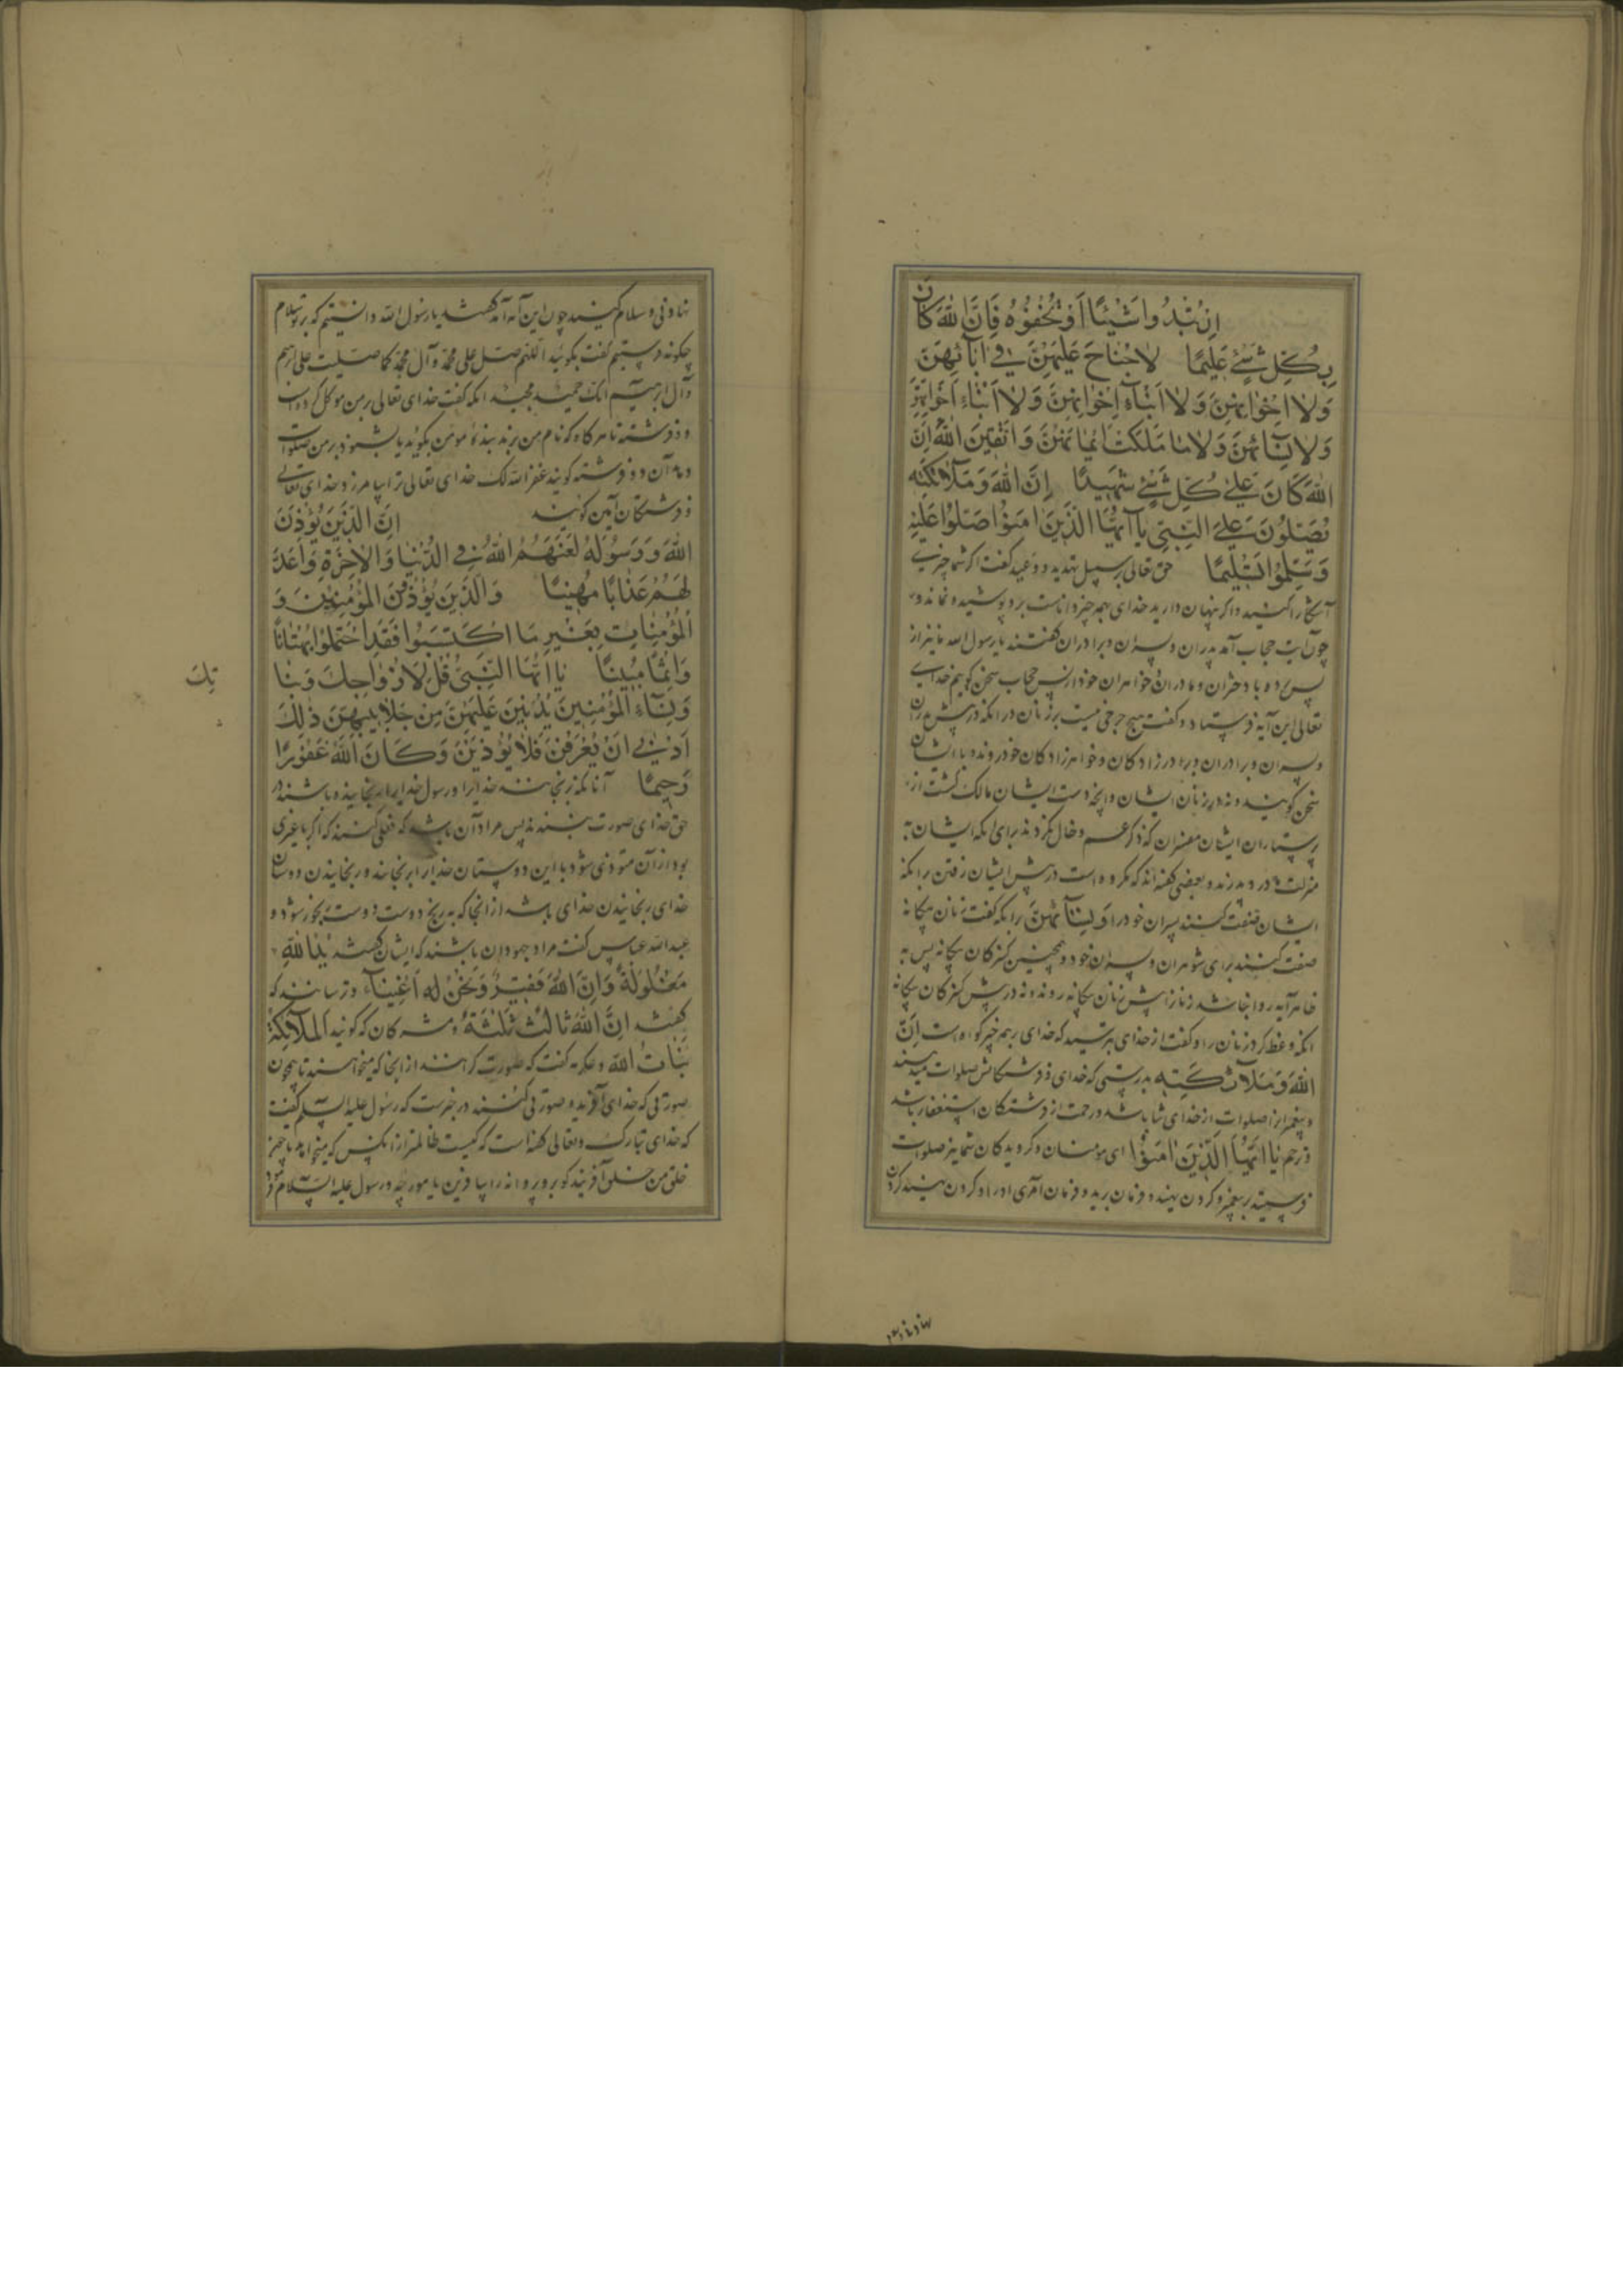 اِنْ تُبْدُوا شَيْئًا اَوْ تُخْفُوهُ فَاِنَّ اللهَ كَانَ
بِكُلِّ شَيْءٍ عَلِيمًا لَا جُنَاحَ عَلَيْهِنَّ فِي اٰبَآئِهِنَّ
وَلَا اِخْوَانِهِنَّ وَلَا اَبْنَآءِ اِخْوَانِهِنَّ وَلَا اَبْنَآءِ اَخَوَاتِهِنَّ
وَلَا نِسَائِهِنَّ وَلَا مَا مَلَكَتْ اَيْمَانُهُنَّ وَاتَّقِينَ اللهَ اِنَّ
اللهَ كَانَ عَلٰى كُلِّ شَيْءٍ شَهِيدًا اِنَّ اللهَ وَمَلَآئِكَتَهُ
يُصَلُّونَ عَلَى النَّبِيِّ يَآ اَيُّهَا الَّذِينَ اٰمَنُوا صَلُّوا عَلَيْهِ
وَسَلِّمُوا تَسْلِيمًا حق تعالی بر سبیل تهدید و وعید کفت اکر شما چیزی
آشکارا کنید و اکر پنهان دارید خدای بهمه چیز داناست برو پوشیده نماند و
چون آیت حجاب آمد پدران و پسران و برادران کفتند یا رسول الله ما نیز از
پس پرده با دختران و مادران و خواهران خود از پس حجاب سخن کوییم خدای
تعالی این آیه فرستاد و کفت هیچ حرجی نیست بر زنان در آنکه در پیش پدران
و پسران و برادران و برادر زادکان و خواهر زادکان خود روند و با ایشان
سخن کویند و نه در زنان ایشان و آنچه دست ایشان مالک کشت از
پرستاران ایشان مفسران که ذکر عم و خال نکردند برای آنکه ایشان به
منزلت مادر و پدرند و بعضی کفته اند که مکروه است در پیش ایشان رفتن برای آنکه
ایشان صفت کنند پسران خود را وَلَا نِسَآئِهِنَّ برای آنکه کفت زنان بیکانه
صفت کنند برای شوهران و پسران خود و همچنین کنیزکان بیکانه پس به
ظاهر آیه روا نباشد زنان را پیش زنان بیکانه روند و نه در پیش کنیزکان بیکانه
آنکه وعظ کرد زنان را و کفت از خدای بترسید که خدای بر همه چیز کواه است اِنَّ
اللهَ وَمَلَآئِكَتَهُ بدرستی که خدای و فرشتکانش صلوات میدهند
و پیغمبر را صلوات از خدای ثنا باشد و رحمت از فرشتکان استغفار باشد
و ترحم يَا اَيُّهَا الَّذِينَ اٰمَنُوا ای مؤمنان و کرویدکان شما نیز صلوات
فرستید بر پیغمبر و کردن بنهید و فرمان برید و فرمان امر او را و کردن
نهادنی و سلام کنید چون این آیه آمد کفتند یا رسول الله دانستیم که بر تو سلام
چکونه فرستیم کفت بکویید اللهم صل علی محمد و آل محمد کما صلیت علی ابرهیم
و آل ابرهیم انک حمید مجید آنکه کفت خدای تعالی بر من موکل کرده است
دو فرشته تا هر کاه که نام من برند بنده مؤمن بکوید یا بشنود بر من صلوات
دهد آن دو فرشته کویند غفر الله لک خدای تعالی ترا بیامرزد و خدای تعالی
و فرشتکان آمین کویند اِنَّ الَّذِينَ يُؤْذُونَ
اللهَ وَرَسُولَهُ لَعَنَهُمُ اللهُ فِي الدُّنْيَا وَالْاٰخِرَةِ وَاَعَدَّ
لَهُمْ عَذَابًا مُهِينًا وَالَّذِينَ يُؤْذُونَ الْمُؤْمِنِينَ وَ
الْمُؤْمِنَاتِ بِغَيْرِ مَا اكْتَسَبُوا فَقَدِ احْتَمَلُوا بُهْتَانًا
وَاِثْمًا مُبِينًا يَا اَيُّهَا النَّبِيُّ قُلْ لِاَزْوَاجِكَ وَبَنَا
تِكَ
وَنِسَآءِ الْمُؤْمِنِينَ يُدْنِينَ عَلَيْهِنَّ مِنْ جَلَابِيبِهِنَّ ذٰلِكَ
اَدْنٰى اَنْ يُعْرَفْنَ فَلَا يُؤْذَيْنَ وَكَانَ اللهُ غَفُورًا
رَحِيمًا آنانکه برنجانند خدایرا و رسول خدایرا رنجانیده باشند در
حق خدای صورت نبندد پس مراد آن باشد که فعلی کنند که اکر با غیری
بود از آن متوذی شود با این دوستان خدایرا برنجانند و رنجانیدن دوستان
خدای رنجانیدن خدای باشد از آنجا که به رنج دوست دوست رنجور شود و
عبدالله عباس کفت مراد جهودان باشند که ایشان کفتند يَدُ اللهِ
مَغْلُولَةٌ وَاِنَّ اللهَ فَقِيرٌ وَنَحْنُ اَغْنِيَآءُ و ترسا آنند که
کفتند اِنَّ اللهَ ثَالِثُ ثَلٰثَةٍ و مشرکان که کویند الْمَلَآئِكَةُ
بَنَاتُ اللهِ و عکرمه کفت که صورت کرانند از آنجا که میخواهند تا همچون
صورتی که خدای آفریند صورتی کنند در خبرست که رسول علیه السلم کفت
که خدای تبارک و تعالی کفته است که کیست ظالمتر از آنکس که میخواهد تا چیز
خلق من خلق آفریند کو برو پروانه را بیافرین یا مورچه و رسول علیه السلام فرمود